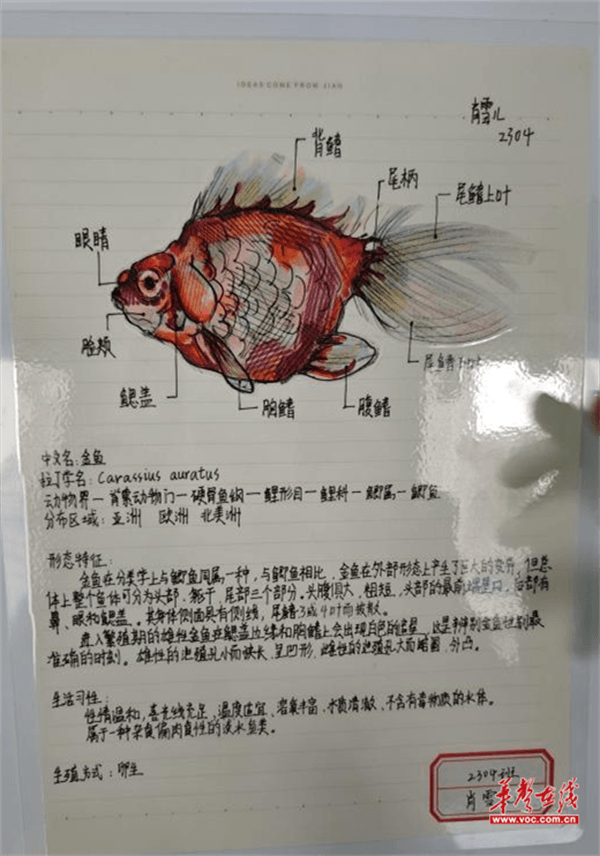 IDEAS COME FROM XIAN
肖雪儿
2304
背鳍
尾柄
尾鳍上叶
眼睛
脸颊
鳃盖
胸鳍
腹鳍
尾鳍下叶
中文名:金鱼
拉丁学名:Carassius auratus
动物界一脊索动物门一硬骨鱼纲一鲤形目一鲤科一鲫属一鲫鱼
分布区域:亚洲 欧洲 北美洲
形态特征:
金鱼在分类学上与鲫鱼同属一种,与鲫鱼相比,金鱼在外部形态上产生了巨大的变异,但总
体上整个鱼体可分为头部、躯干、尾部三个部分。头腹俱大,粗短,头部的最前端是口,后部有
鼻、眼和鳃盖。其身体侧面具有侧线,尾鳍3或4叶而披散。
进入繁殖期的雄性金鱼在鳃盖边缘和胸鳍上会出现白色的追星,这是判别金鱼性别最
准确的时刻。雄性的泄殖孔小而狭长,呈凹形,雌性的泄殖孔大而略圆,外凸。
生活习性:
性情温和,喜光线充足、温度适宜、溶氧丰富、水质清澈、不含有毒物质的水体。
属于一种杂食偏肉食性的淡水鱼类。
生殖方式:卵生
2304班
肖雪
华声在线
www.voc.com.cn